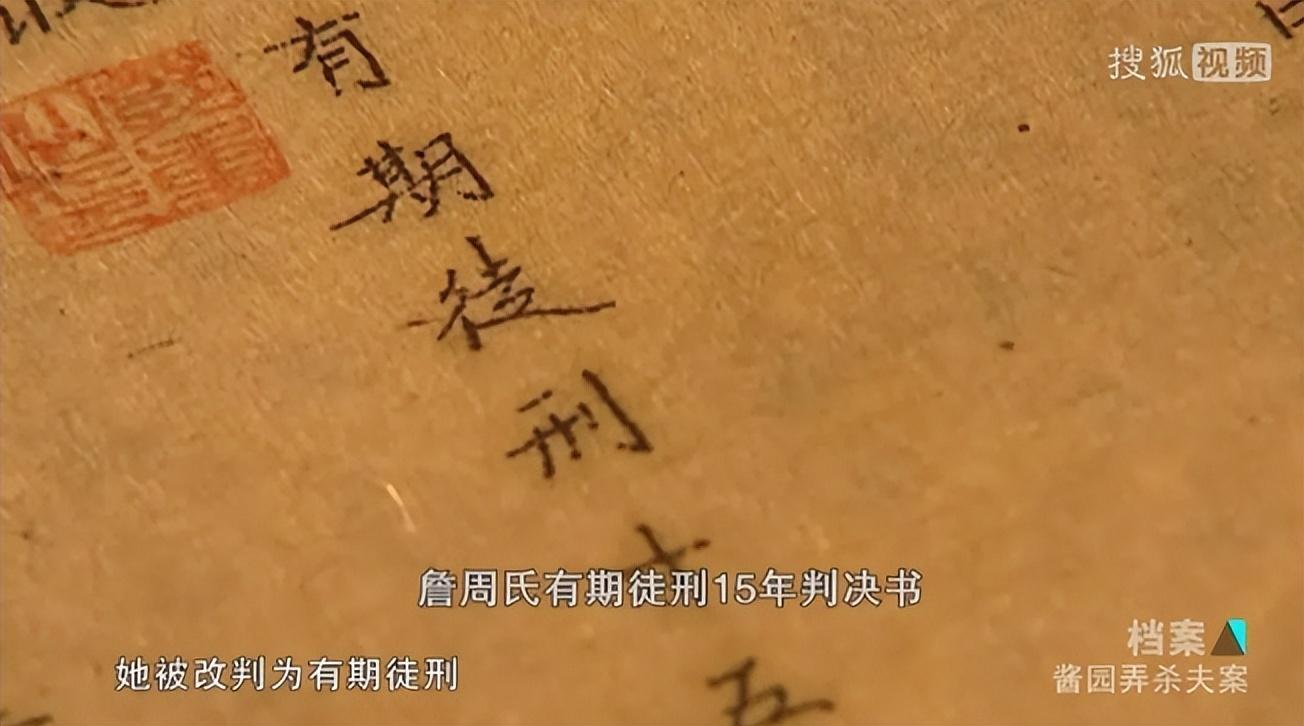 有期徒刑十五
搜狐视频
詹周氏有期徒刑15年判决书
她被改判为有期徒刑
档案
酱园弄杀夫案